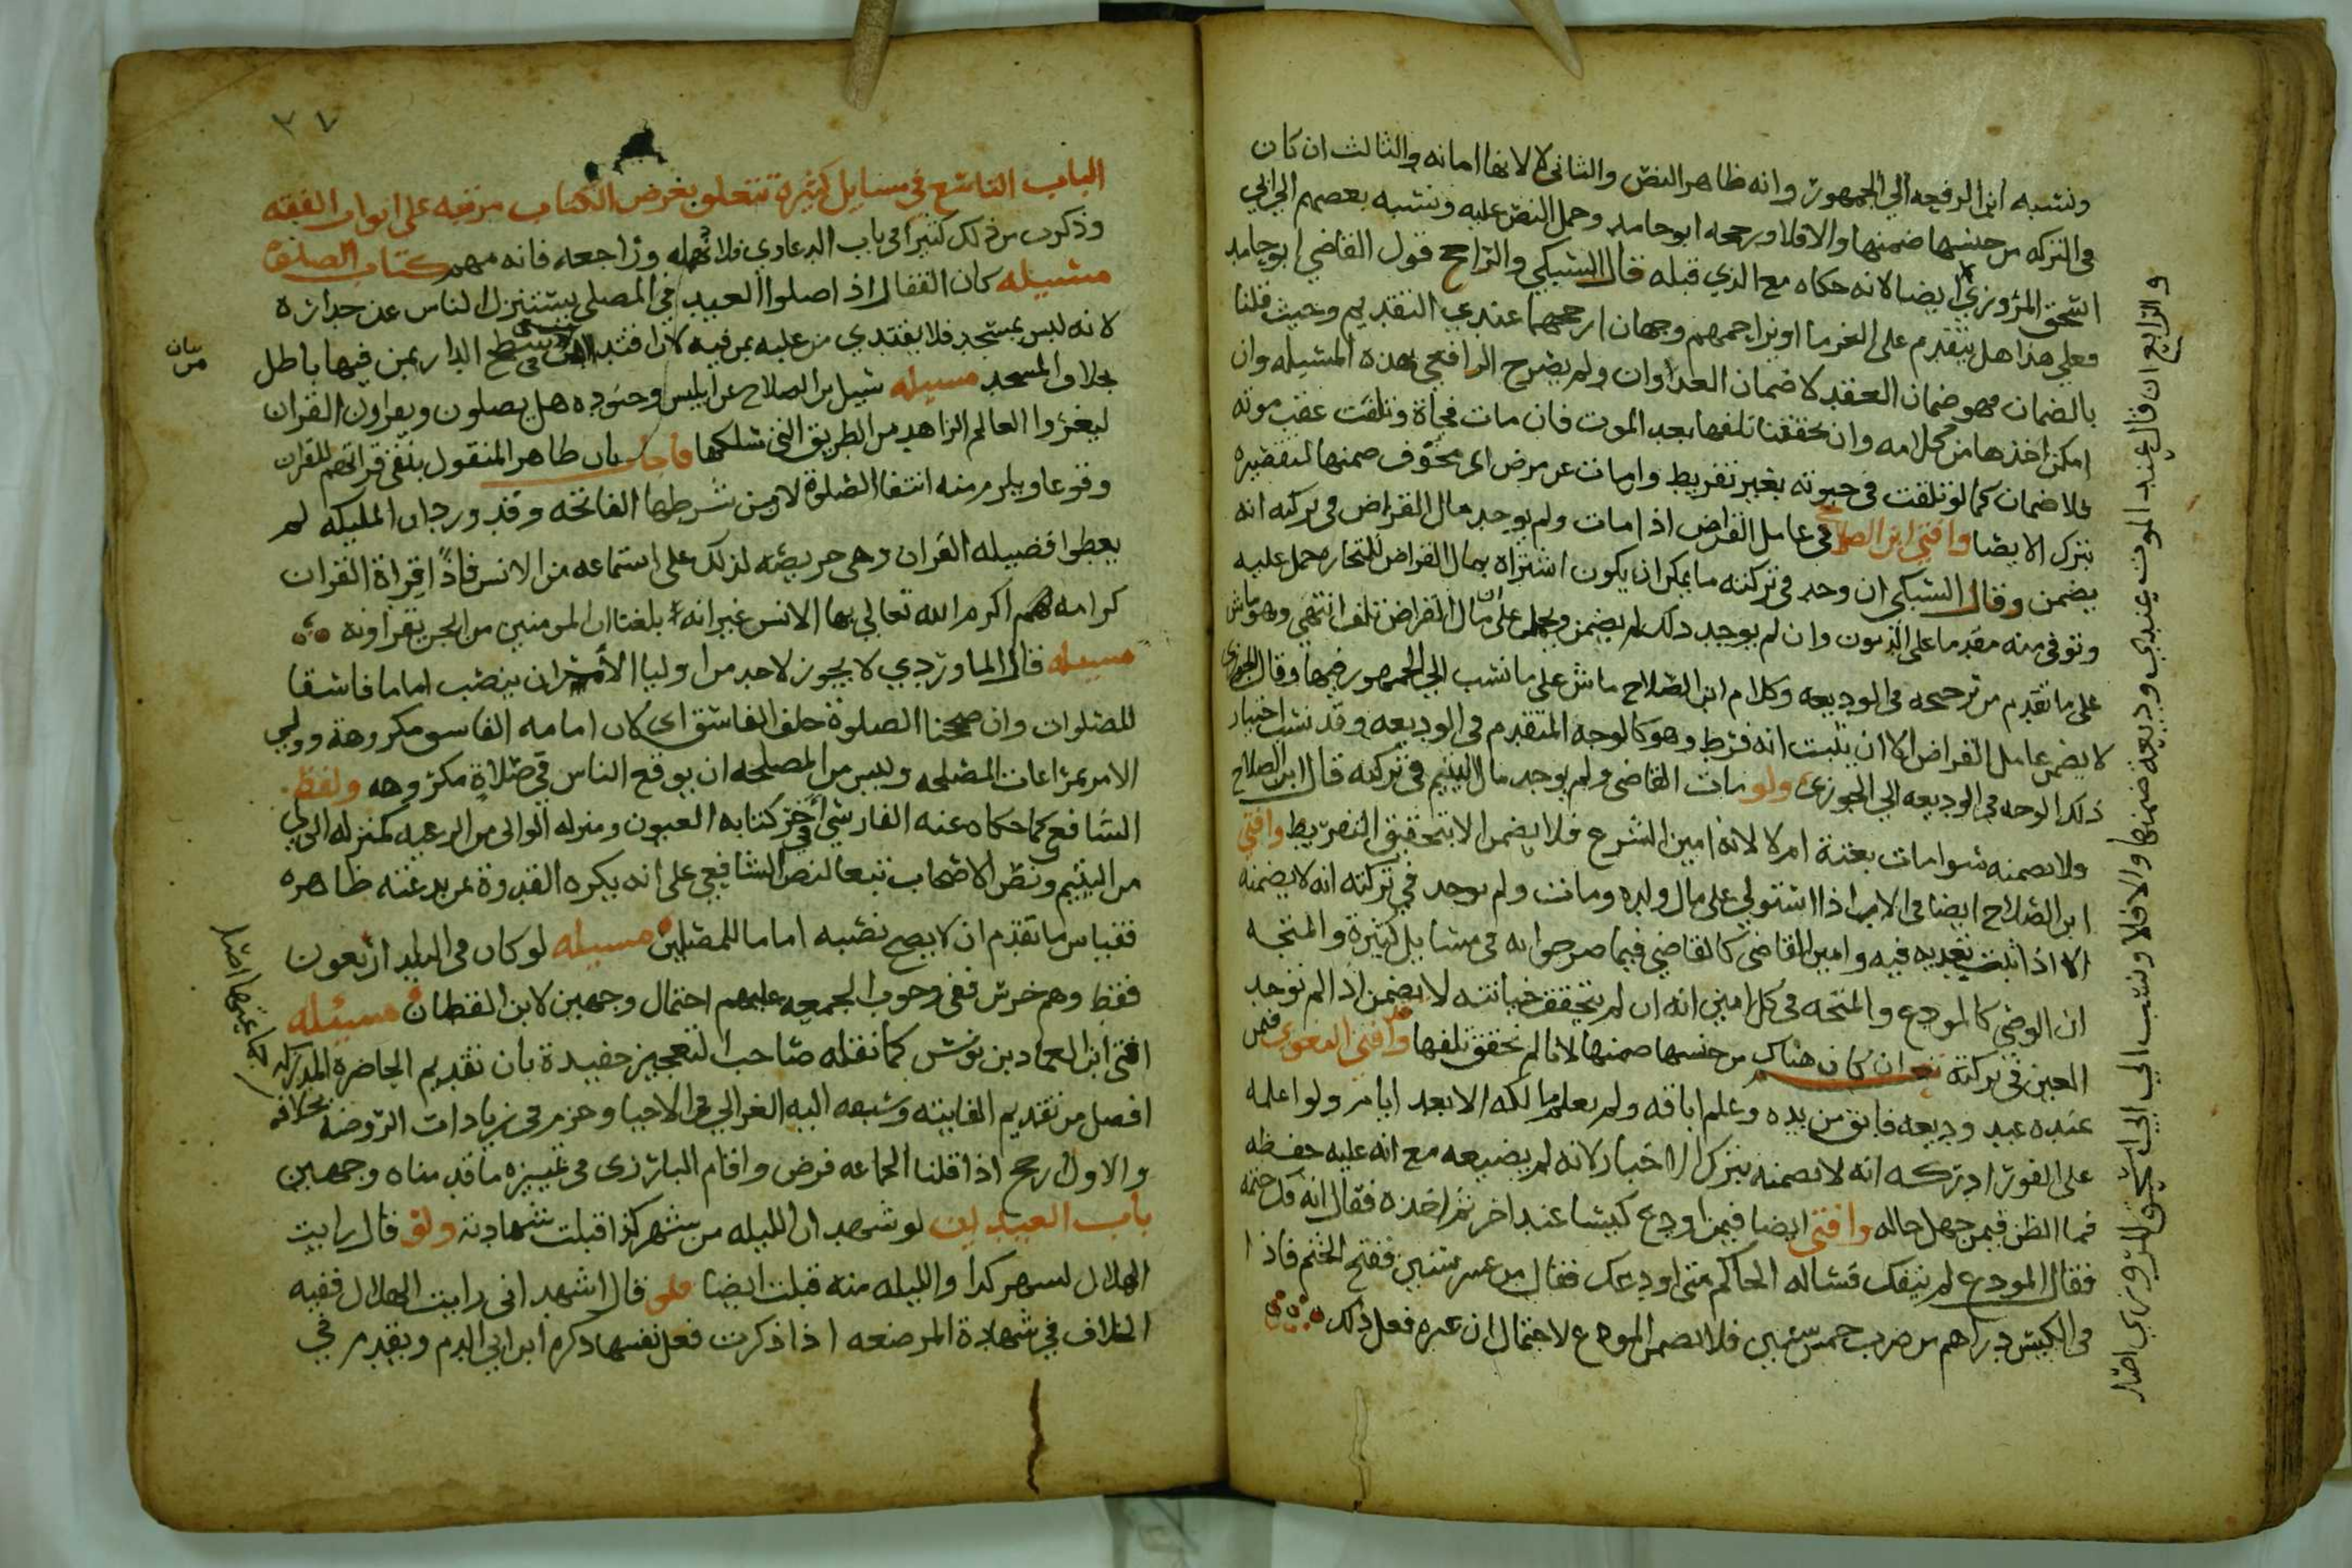 ونسبه ابن الرفعه الي الجمهور وانه ظاهر النص والثاني لا لانها امانه والثالث ان كان
في التركه من جنسها ضمنها والا فلا ورجحه ابو حامد وحمل النص عليه ونسبه بعضهم الي ابي
اسحق المروزي ايضا لانه حكاه مع الذي قبله قال السبكي والراجح قول القاضي ابو حامد
فعلي هذا هل يتقدم على الغرما او يزاحمهم وجهان ارجحهما عندي التقديم وحيث قلنا
بالضمان فهو ضمان العقد لا ضمان العدوان ولم يصرح الرافعي بهذه المسيله وان
امكن اخذها من كلامه وان تحققنا تلفها بعد الموت فان مات فجأة وتلفت عقب موته
فلا ضمان كما لو تلفت في حيوته بغير تفريط وان مات عن مرض اي مخوف ضمنها لتقصيره
بترك الايصا وافتي ابن الصلاح في عامل القراض اذا مات ولم يوجد مال القراض في تركته انه
يضمن وقال السبكي ان وجد في تركته ما يمكن ان يكون اشتراه بمال القراض للتجاره حمل عليه
وتوفى منه مقدما على الديون وان لم يوجد ذلك لم يضمن ويحمل على ان مال القراض تلف انتهي وهو ماش
على ما تقدم من ترجيحه في الوديعه وكلام ابن الصلاح ماش على ما نسب الي الجمهور فيها وقال الجوزي
لا يضمن عامل القراض الا ان يثبت انه فرط وهو كالوجه المتقدم في الوديعه وقد نسب اختيار
ذلك الوجه في الوديعه الي الجوزي ولو مات القاضي ولم يوجد مال اليتيم في تركته قال ابن الصلاح
ولا يضمنه سوا مات بغتة ام لا لانه امين الشرع فلا يضمن الا بتحقيق التفريط وافتي
ابن الصلاح ايضا في الاب اذا استولي على مال ولده ومات ولم يوجد في تركته انه لا يضمنه
الا اذا ثبت تعديه فيه وامين القاضي كالقاضي فيما صرحوا به في مسايل كثيرة والمتجه
ان الوصي كالمودع والمتجه في كل امين انه ان لم يتحقق خيانته لا يضمن اذا لم توجد
العين في تركته نعم ان كان هناك من جنسها ضمنها لانا لم نحقق تلفها وافتي البغوي فيمن
عنده عبد وديعه فابق من يده وعلم اباقه ولم يعلم مالكه الا بعد ايام ولو اعلمه
على الفور ادركه انه لا يضمنه بترك الاخبار لانه لم يضيعه مع انه عليه حفظه
فما الظن فيمن جهل حاله وافتي ايضا فيمن اودع كيسا عند اخر ثم اخذه فقال انه فك ختمه
فقال المودع لم ينفك فساله الحاكم متى اودعك فقال من عشر سنين ففتح الختم فاذا
في الكيس دراهم من ضرب خمس سنين فلا يضمن المودع لاحتمال ان غيره فعل ذلك
والرابع ان قال عند الموت عندي وديعه ضمنها والا فلا ونسب الي ابي اسحق المروزي اصل
٣٧
الباب التاسع في مسايل كثيرة تتعلق بغرض الكتاب مرتبه على ابواب الفقه
وذكرت من ذلك كثيرا في باب الدعاوي فلا تهمله وراجعه فانه مهم كتاب الصلوة
مسيله كان القفال اذا صلوا العيد في المصلي يستنزل الناس عن جداره
لانه ليس بمسجد فلا يقتدي من عليه بمن فيه لان اقتدا من في سطح الدار بمن فيها باطل
بخلاف المسجد مسيله سيل ابن الصلاح عن ابليس وجنوده هل يصلون ويقراون القران
ليغروا العالم الزاهد من الطريق التي سلكها فاجاب بان ظاهر المنقول ينفي قراتهم للقران
وقوعا ويلزم منه انتفا الصلوة لان من شرطها الفاتحه وقد ورد ان المليكه لم
يعطوا فضيله القران وهي حريصه لذلك على استماعه من الانس فاذا قراة القران
كرامه اكرم الله تعالى بها الانس غير انه بلغنا ان المومنين من الجن يقراونه
مسيله قال الماوردي لا يجوز لاحد من اوليا الامر ان ينصب اماما فاسقا
للصلوات وان صححنا الصلوة خلف الفاسق اي لان امامه الفاسق مكروهة وولي
الامر بمراعات المصلحه وليس من المصلحه ان يوقع الناس في صلاة مكروهه ولفظ
الشافعي كما حكاه عنه الفارسي في اخر كتابه العيون ومنزله الوالي من الرعيه كمنزله الولي
من اليتيم ونص الاصحاب تبعا لنص الشافعي على انه يكره القدوة بمن بدعته ظاهره
فقياس ما تقدم ان لا يصح نصبه اماما للمصلين مسيله لو كان في البلد اربعون
فقط وهم خرس ففي وجوب الجمعه عليهم احتمال وجهين لابن القطان مسيله
افتى ابن العماد بن يونس كما نقله صاحب التعجيز حفيدة بان تقديم الحاضرة المدرك
افضل من تقديم الفايته وسبقه اليه الغزالي في الاحيا وجزم في زيادات الروضه بخلافه
والاول رجح اذا قلنا الجماعه فرض واقام البارزى في تمييزه ما قدمناه وجهين
باب العيدين لو شهد ان الليله من شهر كذا قبلت شهادته ولو قال رايت
الهلال لشهر كذا والليله منه قبلت ايضا فلو قال اشهد اني رايت الهلال ففيه
الخلاف في شهادة المرضعه اذا ذكرت فعل نفسها ذكره ابن ابي الدم وتقدم في
بيان